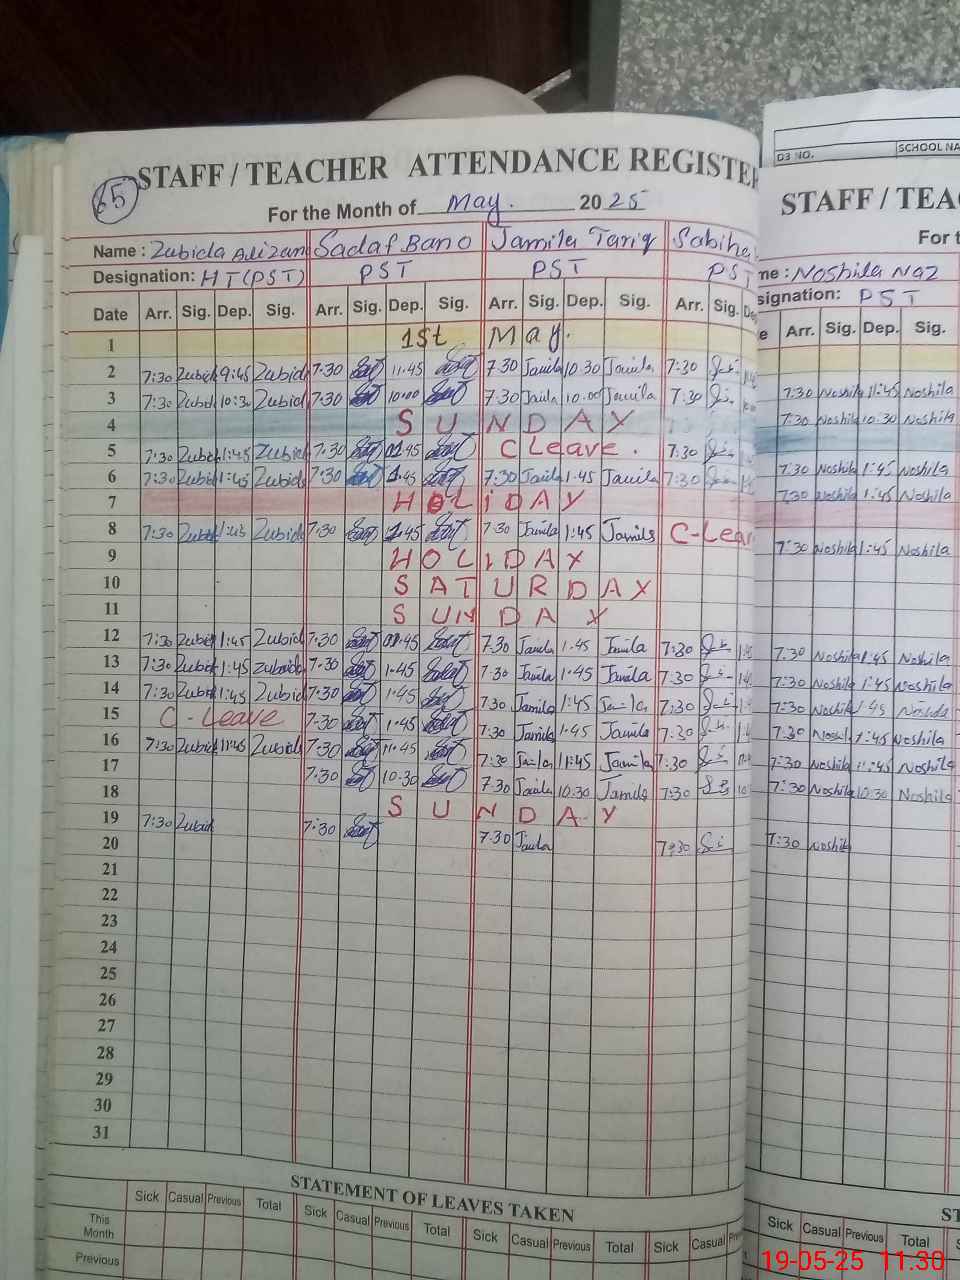 D3 NO. SCHOOL NA
65
STAFF / TEACHER ATTENDANCE REGISTER
For the Month of May. 2025
Name : Zubida Alizam Sadaf Bano Jamila Tariq Sabiha
Designation: HT (PST) PST PST PST
Date Arr. Sig. Dep. Sig. Arr. Sig. Dep. Sig. Arr. Sig. Dep. Sig. Arr. Sig. De
1 1st May.
2 7:30 Zubid 9:45 Zubid 7:30 11:45 7:30 Jamila 10:30 Jamila 7:30
3 7:30 Zubid 10:30 Zubid 7:30 10:00 7:30 Jamila 10:00 Jamila 7:30
4 SUNDAY
5 7:30 Zubid 1:45 Zubid 7:30 1:45 C Leave. 7:30
6 7:30 Zubid 1:45 Zubid 7:30 1:45 7:30 Jamila 1:45 Jamila 7:30
7 HOLIDAY
8 7:30 Zubid 1:45 Zubid 7:30 1:45 7:30 Jamila 1:45 Jamila C-Leav
9 HOLIDAY
10 SATURDAY
11 SUNDAY
12 7:30 Zubid 1:45 Zubid 7:30 1:45 7:30 Jamila 1:45 Jamila 7:30
13 7:30 Zubid 1:45 Zubid 7:30 1:45 7:30 Jamila 1:45 Jamila 7:30
14 7:30 Zubid 1:45 Zubid 7:30 1:45 7:30 Jamila 1:45 Jamila 7:30
15 C-Leave 7:30 1:45 7:30 Jamila 1:45 Jamila 7:30
16 7:30 Zubid 11:45 Zubid 7:30 11:45 7:30 Jamila 11:45 Jamila 7:30
17 7:30 10:30 7:30 Jamila 10:30 Jamila 7:30
18 SUNDAY
19 7:30 Zubid 7:30 7:30 Jamila
20 7:30
21
22
23
24
25
26
27
28
29
30
31
STATEMENT OF LEAVES TAKEN
Sick Casual Previous Total Sick Casual Previous Total Sick Casual Previous Total Sick Casual Prev
This Month
Previous
STAFF / TEA
For t
me : Noshila Naz
signation: PST
e Arr. Sig. Dep. Sig.
7:30 Noshila 11:45 Noshila
7:30 Noshila 10:30 Noshila
7:30 Noshila 1:45 Noshila
7:30 Noshila 1:45 Noshila
7:30 Noshila 1:45 Noshila
7:30 Noshila 1:45 Noshila
7:30 Noshila 1:45 Noshila
7:30 Noshila 1:45 Noshila
7:30 Noshila 1:45 Noshila
7:30 Noshila 11:45 Noshila
7:30 Noshila 10:30 Noshila
7:30 Noshila
ST
Sick Casual Previous Total
19-05-25 11.30